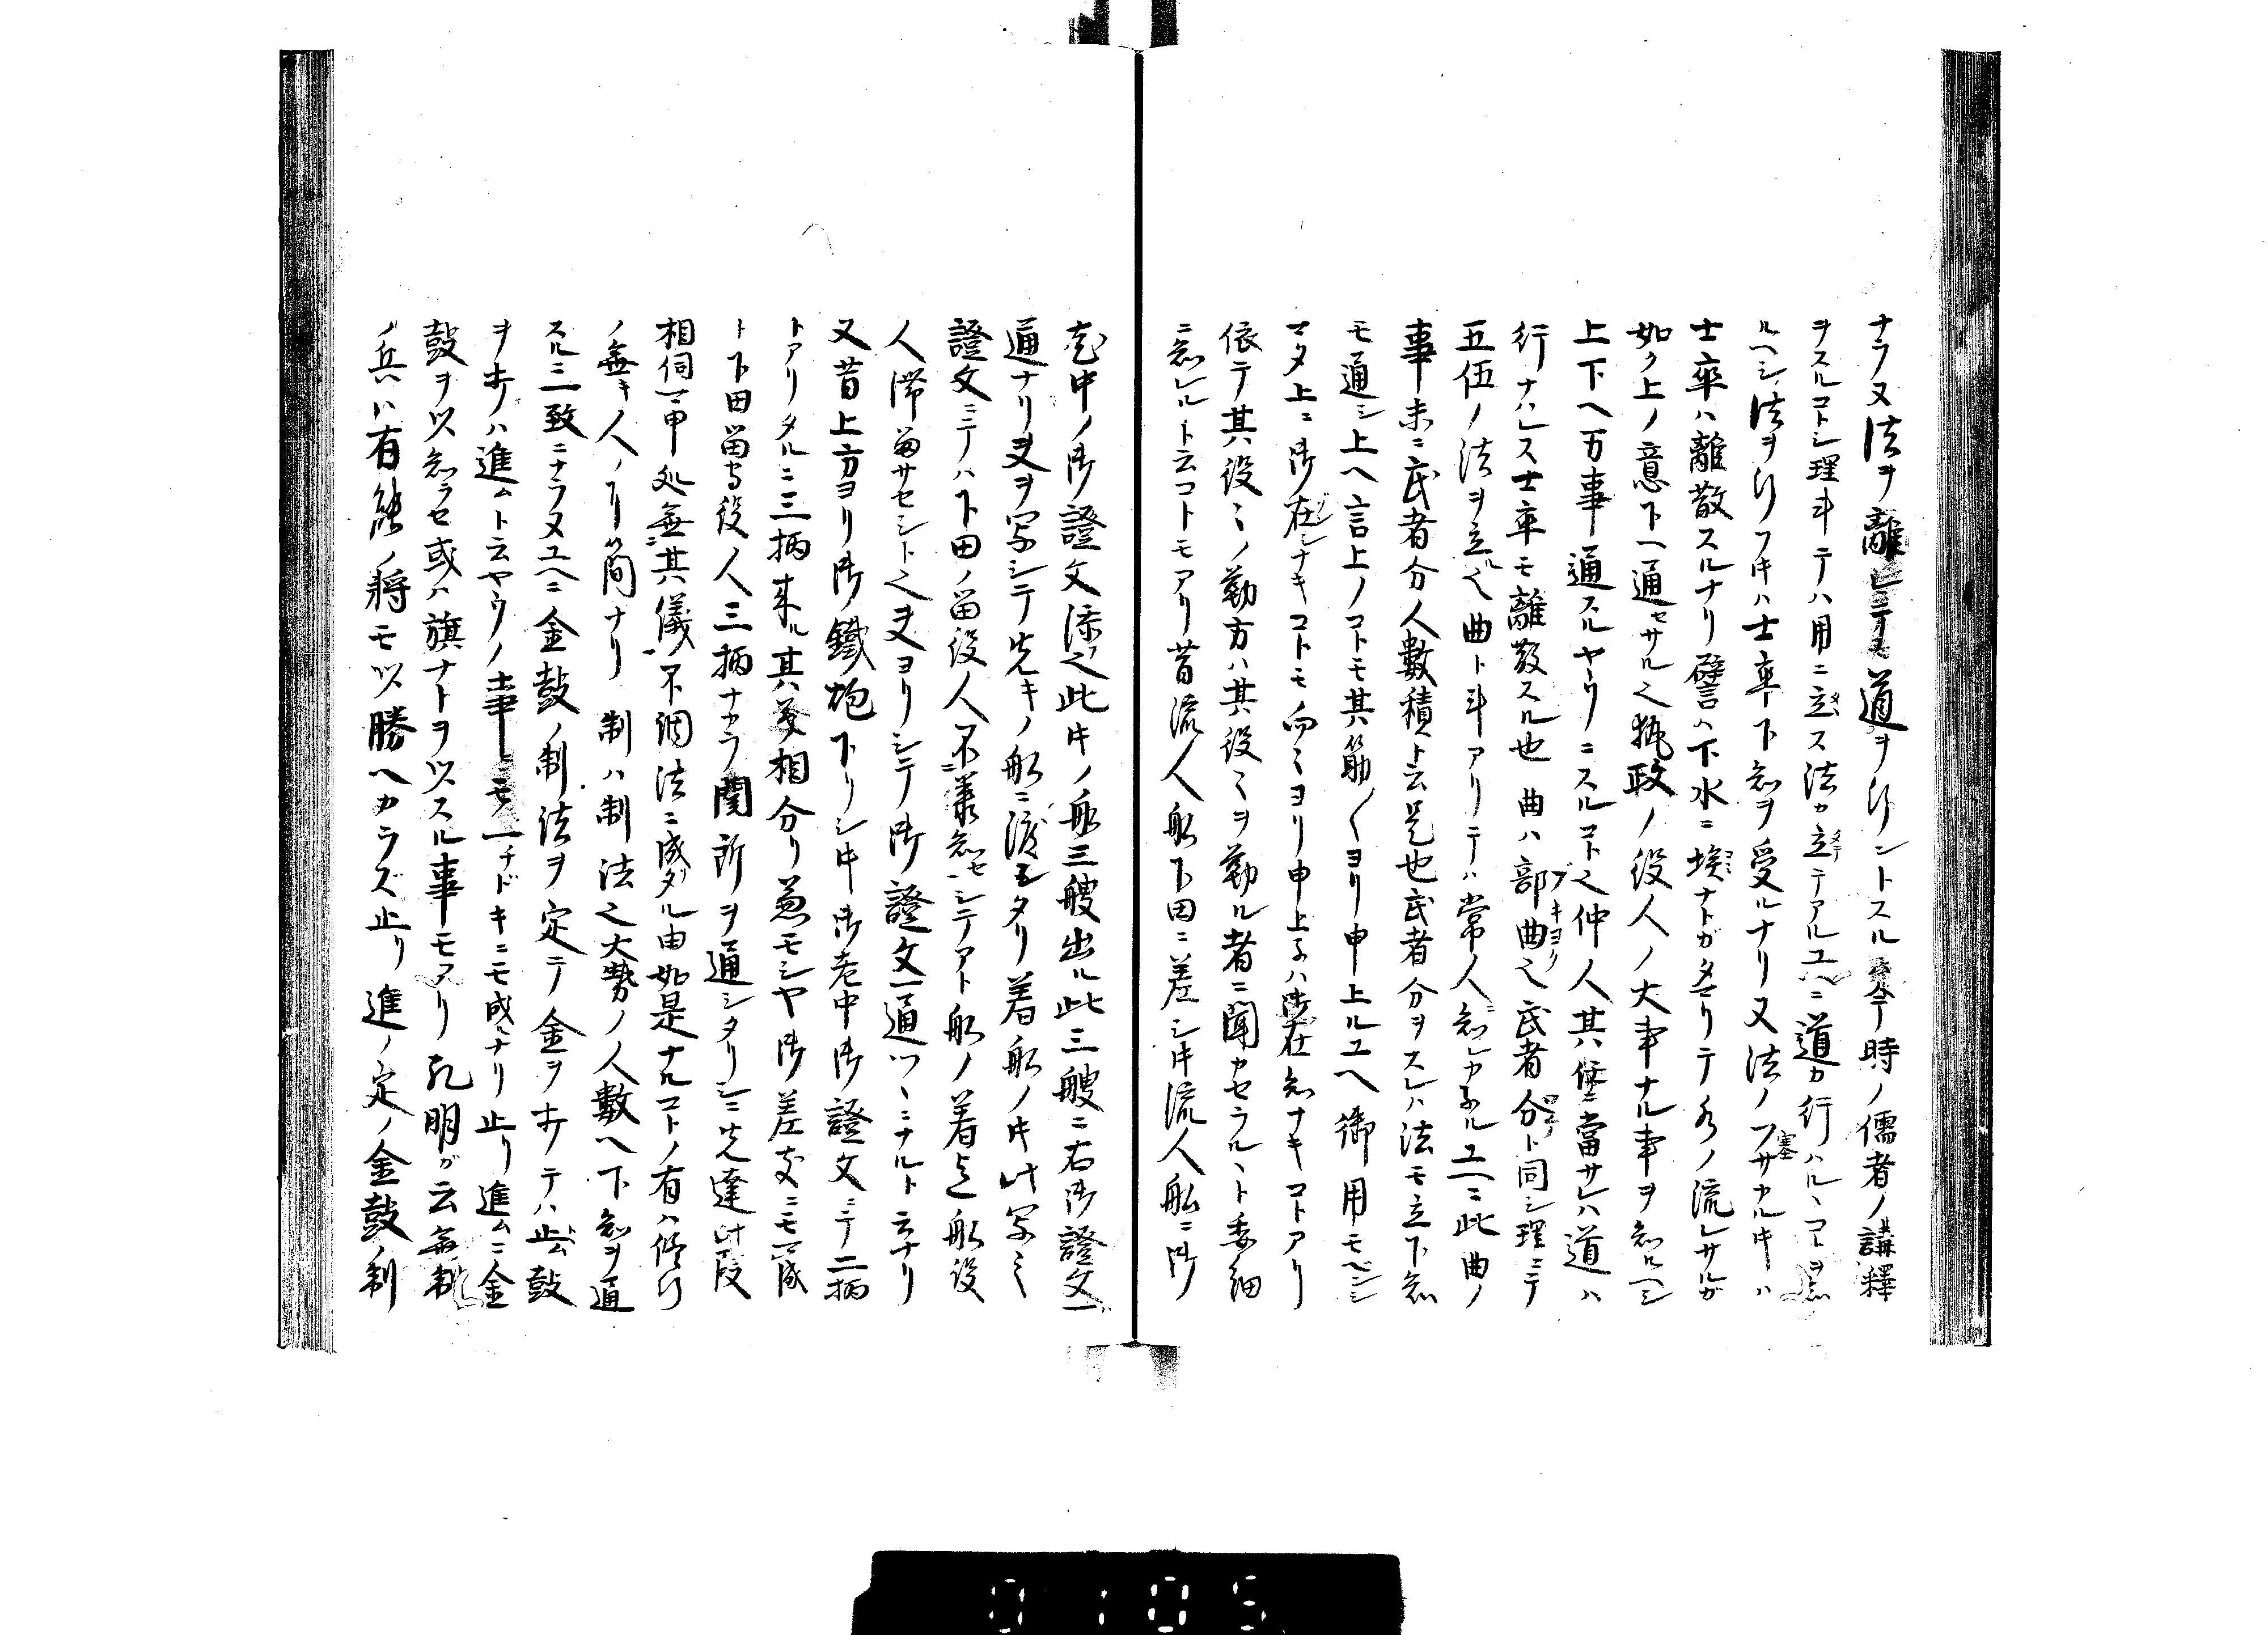 ナラヌ法ヲ離レテ道ヲ行ントスル今時ノ儒者ノ講釋
ヲスルコトシ理斗テハ用ニ立ス法カ立テアルユヘニ道カ行ハルヽコトヲ
ルヘシ法ヲ行フ片ハ士卒下知ヲ受ルナリ又法ノフサカル片ハ
士卒ハ離散スルナリ譬ヘハ下水ニ埃ナトガタマリテ水ノ流レサルガ
如ク上ノ意下ヘ通セサル也執政ノ役人ノ大事ナル事ヲ知ルヘシ
上下ヘ万事通スルヤウニスルコト也仲人其任ニ當サレハ道ハ
行ナハレス士卒モ離散スル也曲ハ部曲也武者分ト同シ理ニテ
五伍ノ法ヲ立ル也曲ト斗アリテハ常人知レカヌルユヘニ此曲ノ
事末ニ武者分人數積ト云是也武者分ヲスレハ法モ立下知
モ通シ上ヘ言上ノコトモ其筋〱ヨリ申上ルユヘ御用モヘシ
マタ上ニ御在シナキコトモ向〻ヨリ申上子ハ御在知ナキコトアリ
依テ其役〻ノ勤方ハ其役〻ヲ勤ル者ニ聞カセラルヽト委細
ニ知レルト云コトモアリ昔流人船下田ニ差シ片流人船ニ御
老中ノ御證文添フ也此片ノ船三艘出ル此三艘ニ右御證文一
通ナリ夫ヲ写シテ先キノ船ニ渡シタリ着船ノ片此写シノ
證文ニテハ下田ノ留役人不承知ニシテアト船ノ着迄船役
人滞留サセシト也夫ヨリシテ御證文一通ツヽニナルト云ナリ
又昔上方ヨリ御鐵炮下リシ片御老中御證文ニテ二柄
トアリタルニ三柄来ル其後相分リ急モシヤ御差支ニモ成
ト下田留守役人三柄ナカラ関所ヲ通シタリシニ先達此段
相伺可申処無其儀不調法ニ成タル由如是ナルコトノ有ハ修行
ノ無キ人ノ了簡ナリ制ハ制法也大勢ノ人數ヘ下知ヲ通
スルニ一致ニナラヌユヘニ金鼓ノ制法ヲ定テ金ヲ打テハ止ム鼓
ヲ打ハ進ムト云ヤウノ事ニモ一チドキニモ成ナリ止リ進ムニ金
鼓ヲ以知ラセ或ハ旗ナトヲ以スル事モアリ孔明ガ云無制
ノ兵ハ有能ノ將モ以勝ヘカラズ止リ進ノ定ノ金鼓ノ制